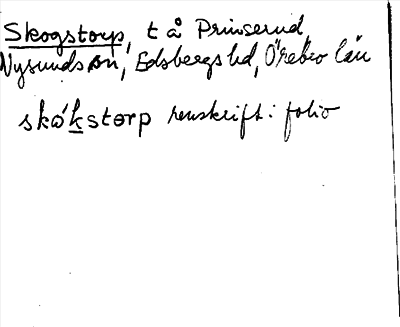 Skogstorp, t å Prinserud,
Nysunds sn, Edsbergs hd, Örebro län
skó̀kstorp renskrift i folio